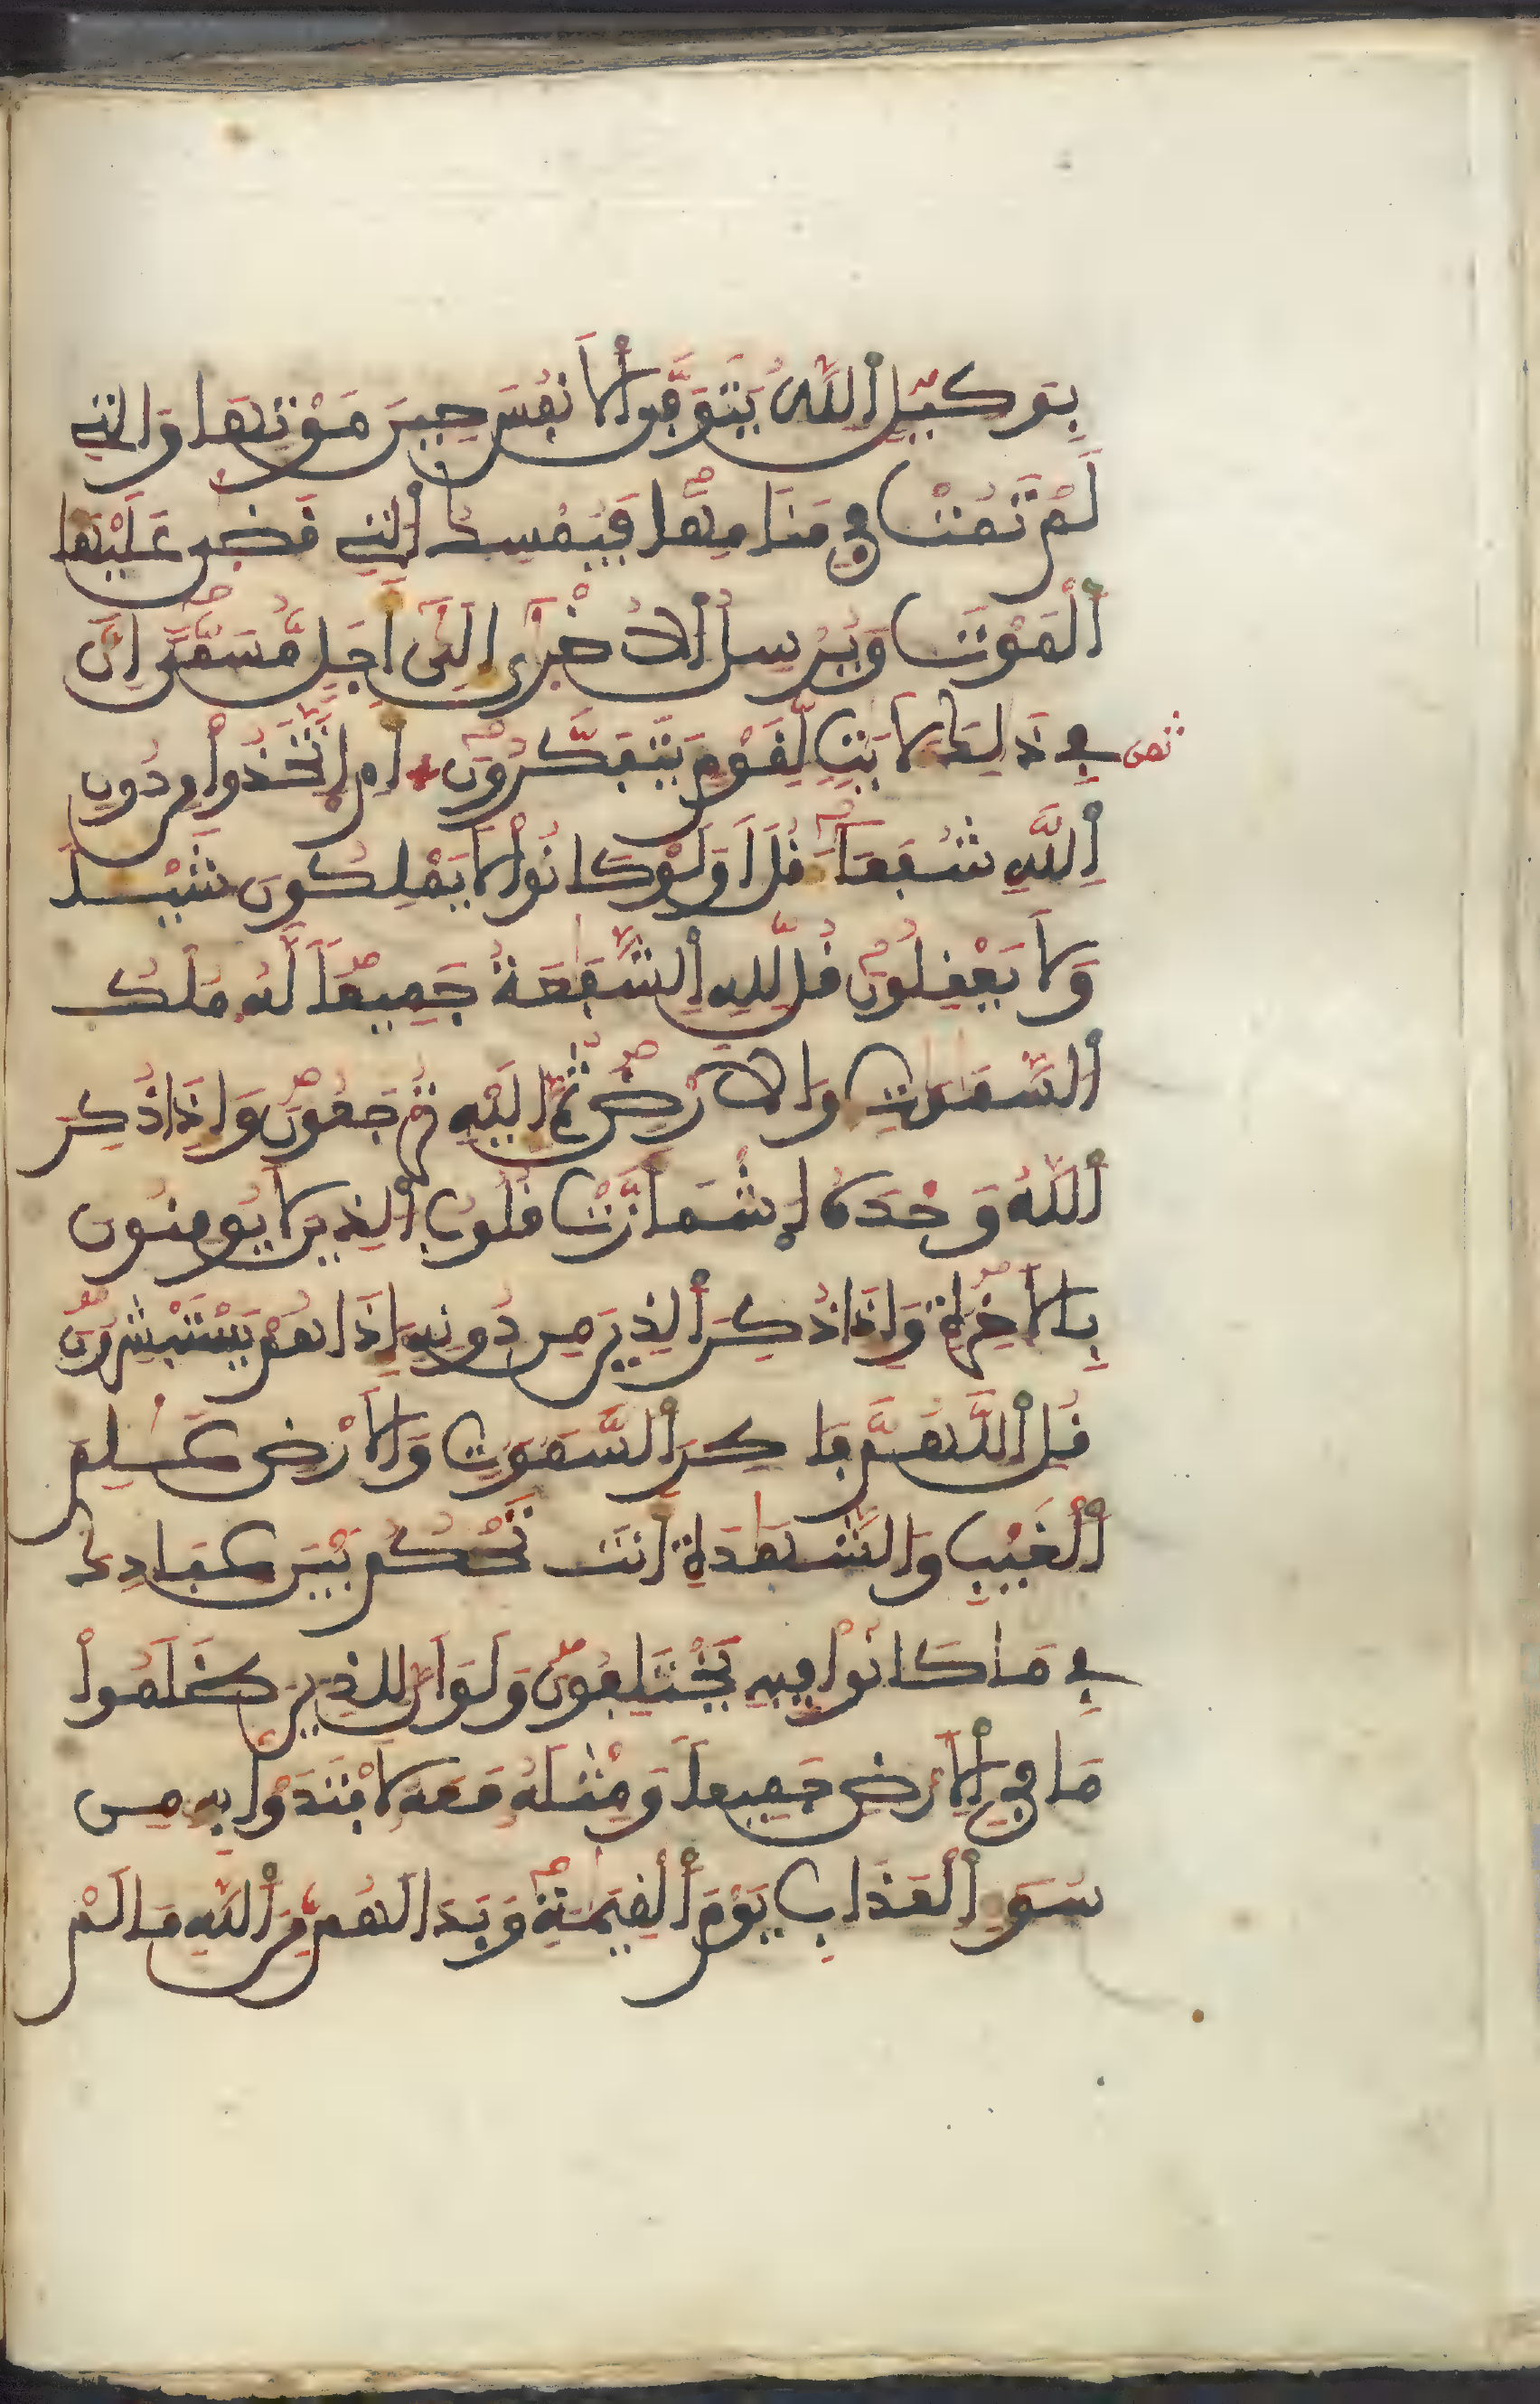 بِوَكِيلٍ اَ۬للَّهُ يَتَوَفَّي اَ۬لَانفُسَ حِينَ مَوْتِهَا وَالتِے
لَمْ تَمُتْ فِي مَنَامِهَا فَيُمْسِكُ اُ۬لتِے قَضَي عَلَيْهَا
اَ۬لْمَوْتَ وَيُرْسِلُ اُ۬لُاخْرَيٰ إِلَيٰ أَجَلٖ مُّسَمّيً اِنَّ
فِے ذَٰلِكَ لَأيَٰتٖ لِّقَوْمٖ يَتَفَكَّرُونَ أَمِ اِ۪تَّخَذُواْ مِن دُونِ
ثمن
اِ۬للَّهِ شُفَعَآءَ قُلَ اَوَلَوْ كَانُواْ لَا يَمْلِكُونَ شَيْـٔاً
وَلَا يَعْقِلُونَ قُل لِّلهِ اِ۬لشَّفَٰعَةُ جَمِيعاً لَّهُۥ مُلْكُ
اُ۬لسَّمَٰوَٰتِ وَالَارْضِ ثُمَّ إِلَيْهِ تُرْجَعُونَ وَإِذَا ذُكِرَ
اَ۬للَّهُ وَحْدَهُ اُ۪شْمَأَزَّتْ قُلُوبُ اُ۬لذِينَ لَا يُومِنُونَ
بِالَاخِرَةِ وَإِذَا ذُكِرَ اَ۬لذِينَ مِن دُونِهِۦ إِذَا هُمْ يَسْتَبْشِرُونَ
قُلِ اِ۬للَّهُمَّ فَاطِرَ اَ۬لسَّمَٰوَٰتِ وَالَارْضِ عَٰلِمَ
اَ۬لْغَيْبِ وَالشَّهَٰدَةِ أَنتَ تَحْكُمُ بَيْنَ عِبَادِكَ
فِے مَا كَانُواْ فِيهِ يَخْتَلِفُونَ وَلَوَ اَنَّ لِلذِينَ ظَلَمُواْ
مَا فِي اِ۬لَارْضِ جَمِيعاً وَمِثْلَهُۥ مَعَهُۥ لَافْتَدَوْاْ بِهِۦ مِن
سُوٓءِ اِ۬لْعَذَابِ يَوْمَ اَ۬لْقِيَٰمَةِ وَبَدَا لَهُم مِّنَ اَ۬للَّهِ مَا لَمْ